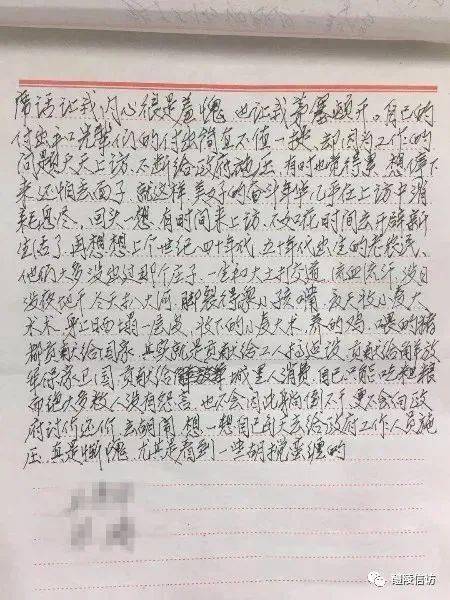 席话让我内心很是羞愧 也让我茅塞顿开。自己的
付出和先辈们的付出简直不值一提 却因为工作的
问题天天上访、不断给政府施压,有时也觉得累 想停下
来 还怕丢面子 就这样 美好的奋斗年华几乎在上访中消
耗怠尽、回头一想 有时间来上访、不如花时间去开辟新
生活了、再想想上个世纪四十年代、五十年代出生的老农民、
他们大多没出过那个庄子、一生和大土打交道、流血流汗、没日
没夜地干 冬天扒大河、脚裂得像小孩嘴、夏天收小麦大
米、晒塌一层皮、收下的小麦大米、养的鸡、喂的猪
都贡献给国家、其实就是贡献给工人搞建设、贡献给解放
军保家卫国、贡献给城里人消费、自己只能吃粗粮
而绝大多数人没有怨言、也不会因此躺倒不干更不会向政
府讨价还价、去胡闹、想一想自己天天去给政府工作人员施
压、真是惭愧、尤其是看到一些胡搅蛮缠的
醴陵信访